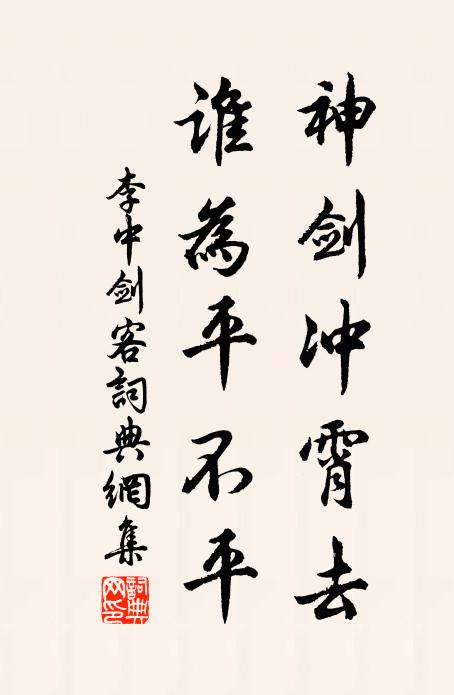 神剑冲霄去
誰為平不平
李中剑客詞典網集
詞典網印